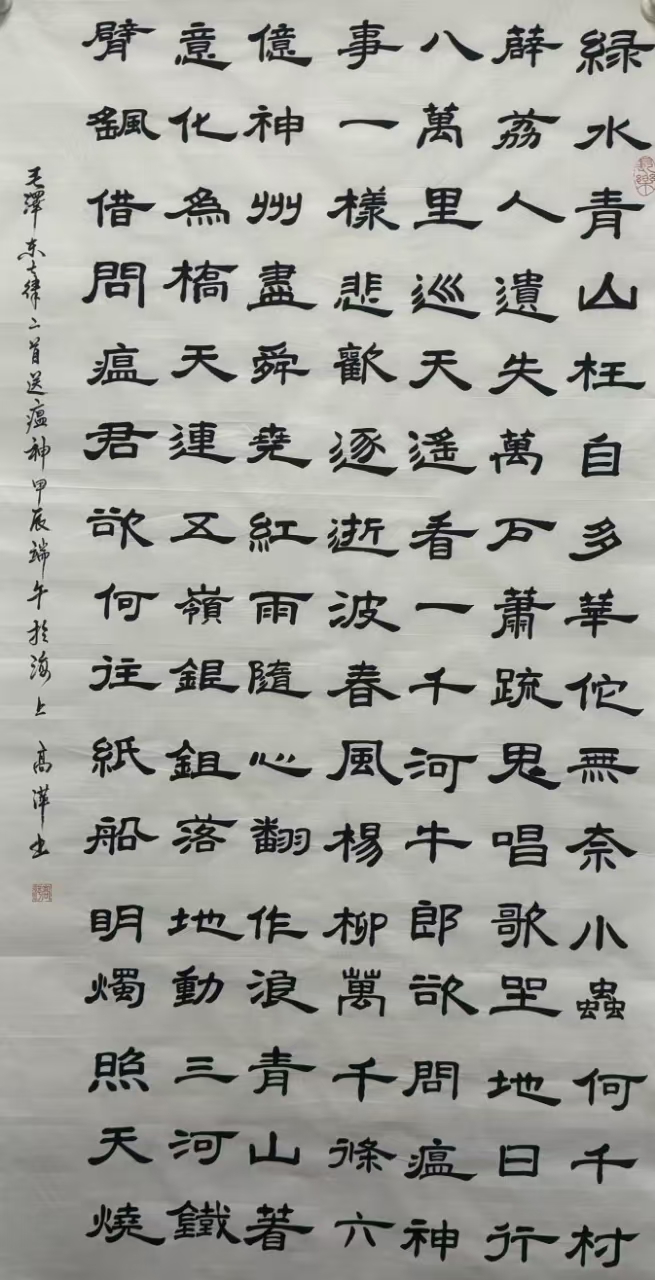 綠水青山枉自多華佗無奈小蟲何千村
薜荔人遺失萬户蕭疏鬼唱歌坐地日行
八萬里巡天遙看一千河牛郎欲問瘟神
事一樣悲歡逐逝波春風楊柳萬千條六
億神州盡舜堯紅雨隨心翻作浪青山著
意化爲橋天連五嶺銀鉏落地動三河鐵
臂颻借問瘟君欲何往紙船明燭照天燒
毛澤东七律二首送瘟神甲辰端午於海上 高书